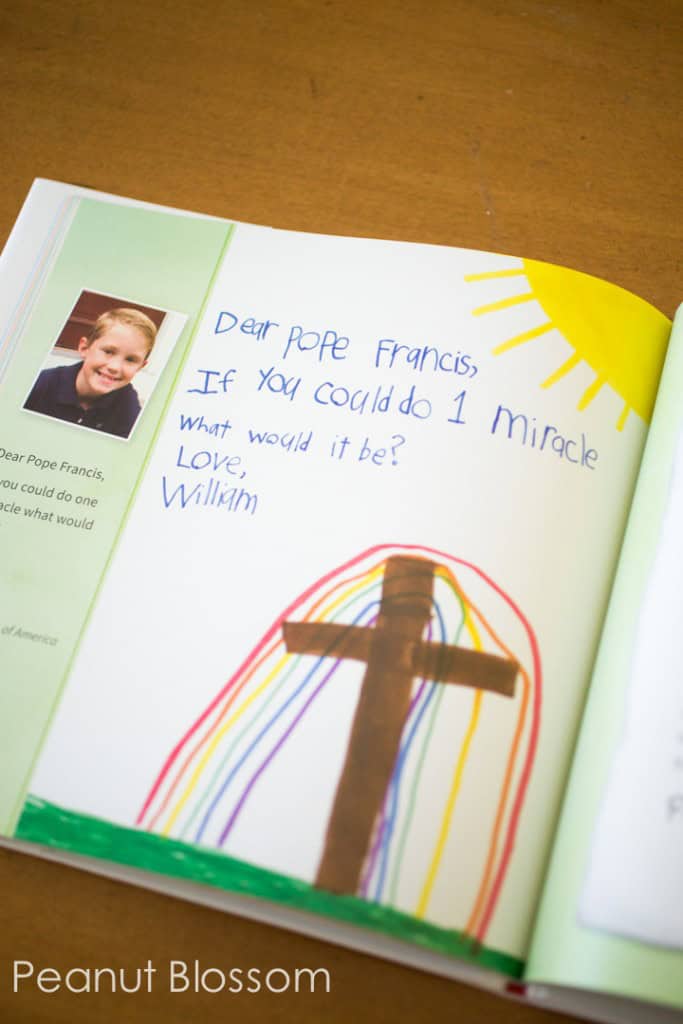 Dear Pope Francis,
If You could do 1 miracle
what would it be?
Love,
William
Dear Pope Francis,
you could do one
acle what would
of America
Peanut Blossom